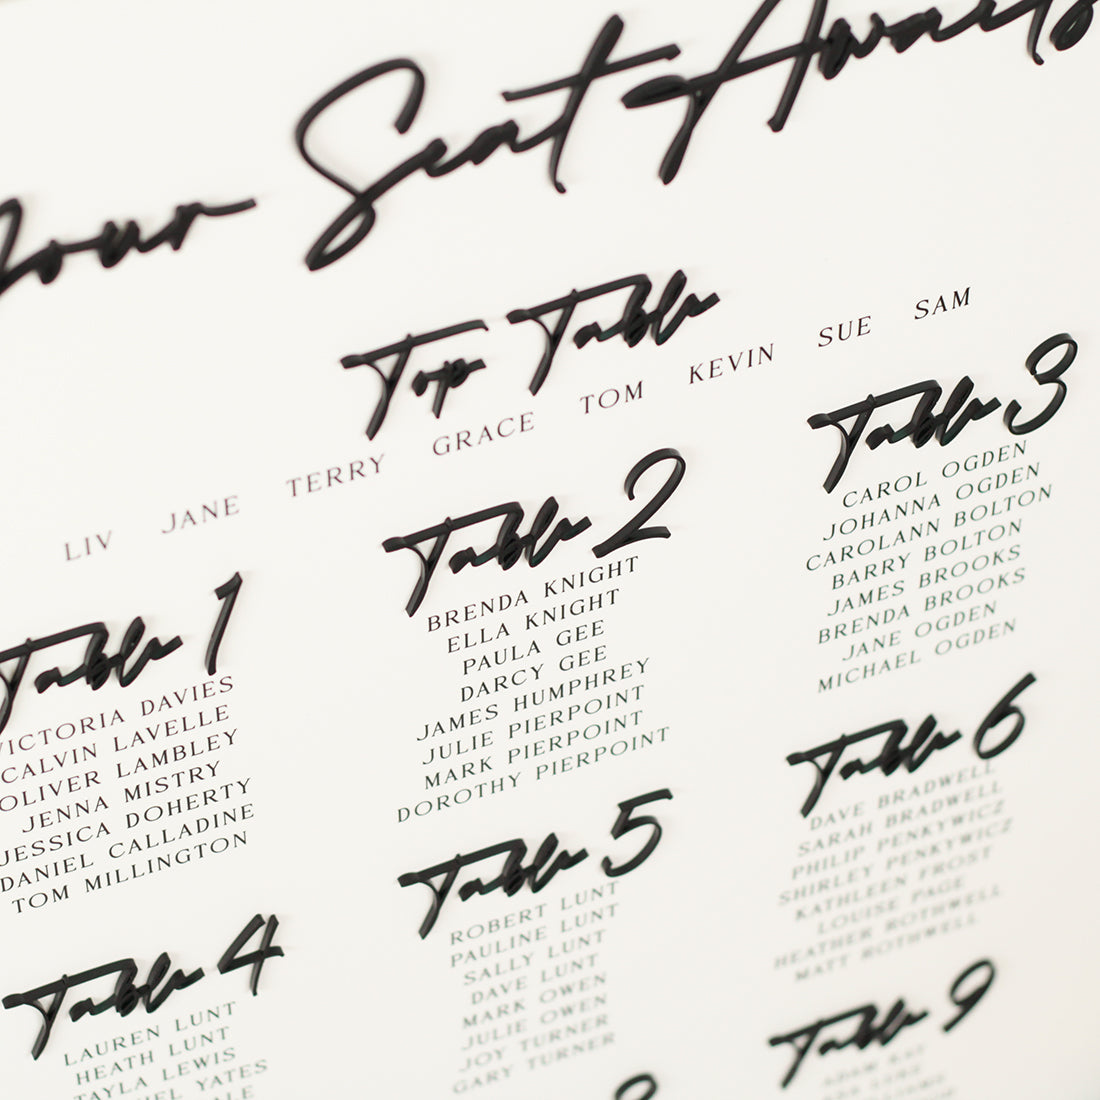 Your Seat Awaits
Top Table
LIV JANE TERRY GRACE TOM KEVIN SUE SAM
Table 1
VICTORIA DAVIES
CALVIN LAVELLE
OLIVER LAMBLEY
JENNA MISTRY
JESSICA DOHERTY
DANIEL CALLADINE
TOM MILLINGTON
Table 2
BRENDA KNIGHT
ELLA KNIGHT
PAULA GEE
DARCY GEE
JAMES HUMPHREY
JULIE PIERPOINT
MARK PIERPOINT
DOROTHY PIERPOINT
Table 3
CAROL OGDEN
JOHANNA OGDEN
CAROLANN BOLTON
BARRY BOLTON
JAMES BROOKS
BRENDA BROOKS
JANE OGDEN
MICHAEL OGDEN
Table 4
LAUREN LUNT
HEATH LUNT
TAYLA LEWIS
YATES
Table 5
ROBERT LUNT
PAULINE LUNT
SALLY LUNT
DAVE LUNT
MARK OWEN
JULIE OWEN
JOY TURNER
GARY TURNER
Table 6
DAVE BRADWELL
SARAH BRADWELL
PHILIP PENKYWICZ
SHIRLEY PENKYWICZ
KATHLEEN FROST
LOUISE PAGE
HEATHER ROTHWELL
MATT ROTHWELL
Table 9
ADAM